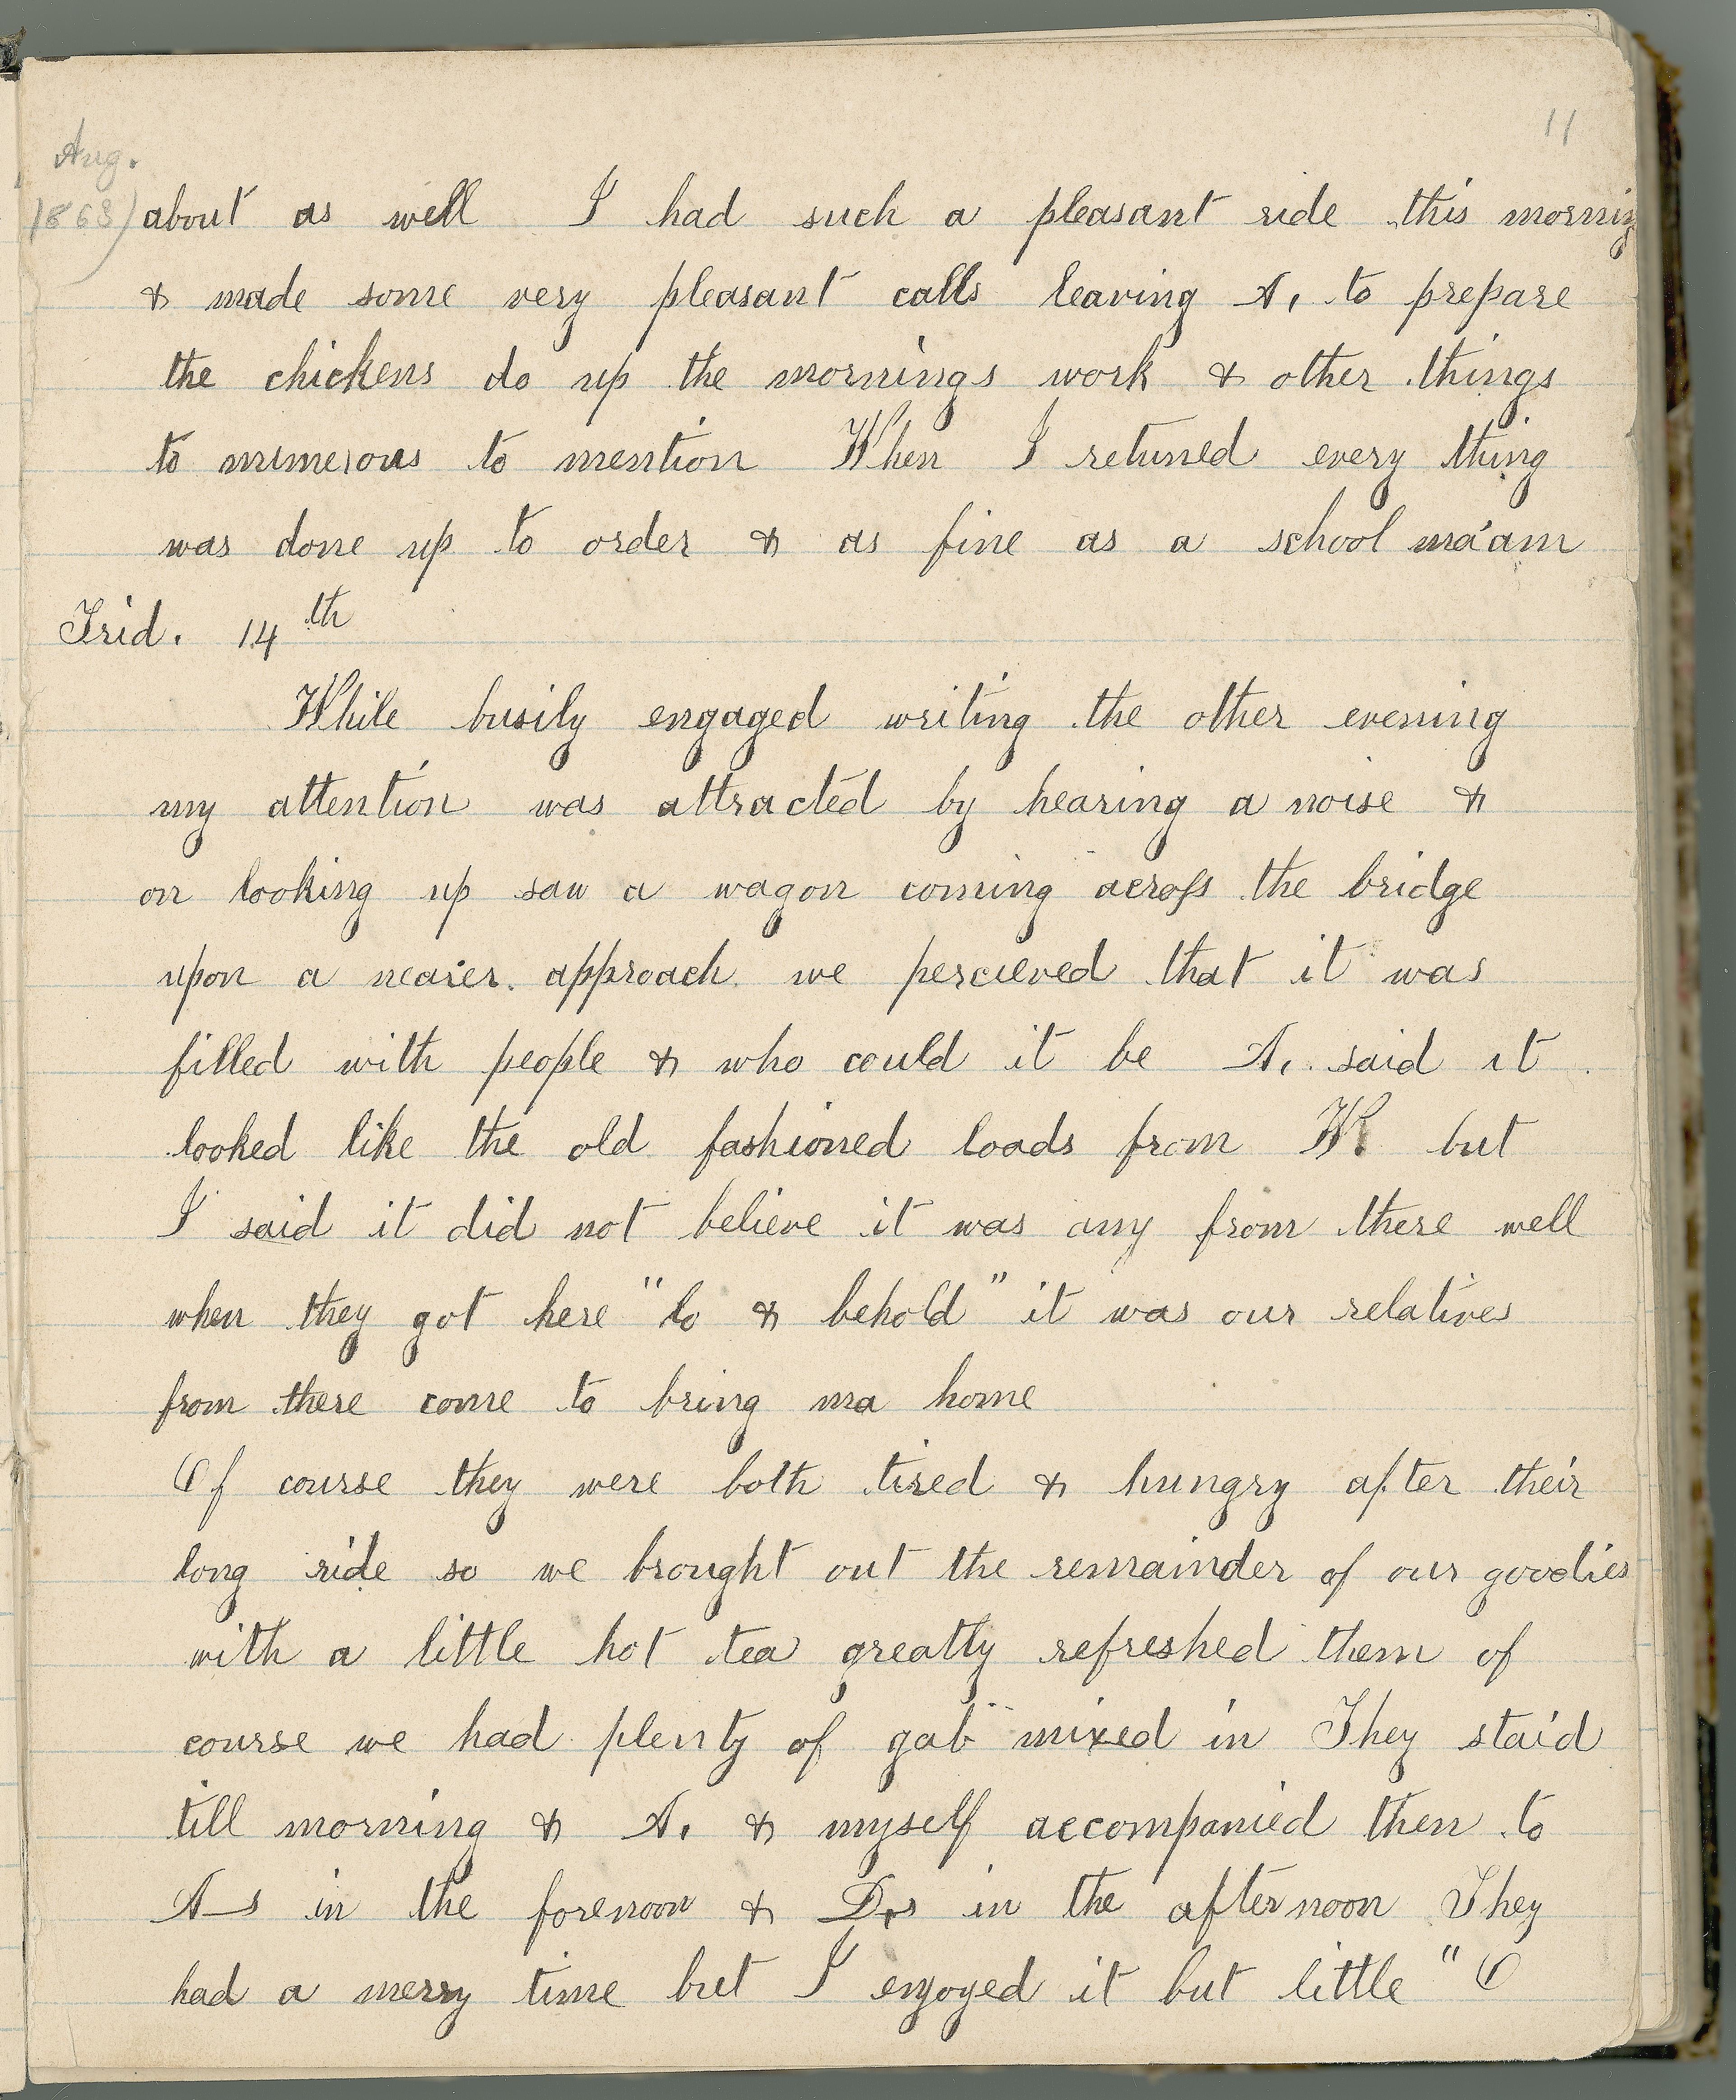 11
Aug.
1863)
about as well I had such a pleasant ride this morning
& made some very pleasant calls leaving A. to prepare
the chickens do up the mornings work & other things
to numerous to mention When I retuned every thing
was done up to order & as fine as a school ma'am
Frid. 14th
While busily engaged writing the other evening
my attention was attracted by hearing a noise &
on looking up saw a wagon coming across the bridge
upon a nearer approach we percieved that it was
filled with people & who could it be A. said it
looked like the old fashioned loads from W. but
I said it did not believe it was any from there well
when they got here "lo & behold" it was our relatives
from there come to bring ma home
Of course they were both tired & hungry after their
long ride so we brought out the remainder of our goodies
with a little hot tea greatly refreshed them of
course we had plenty of "gab" mixed in They staid
till morning & A. & myself accompanied then to
A—s in the forenoon & D.s in the afternoon They
had a merry time but I enjoyed it but little "O